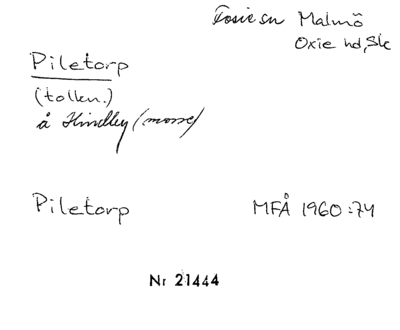 Fosie sn Malmö
Oxie hd, Sk
Piletorp
(tolkn.)
å Hindley (morse)
Piletorp MFÅ 1960:74
Nr 21444